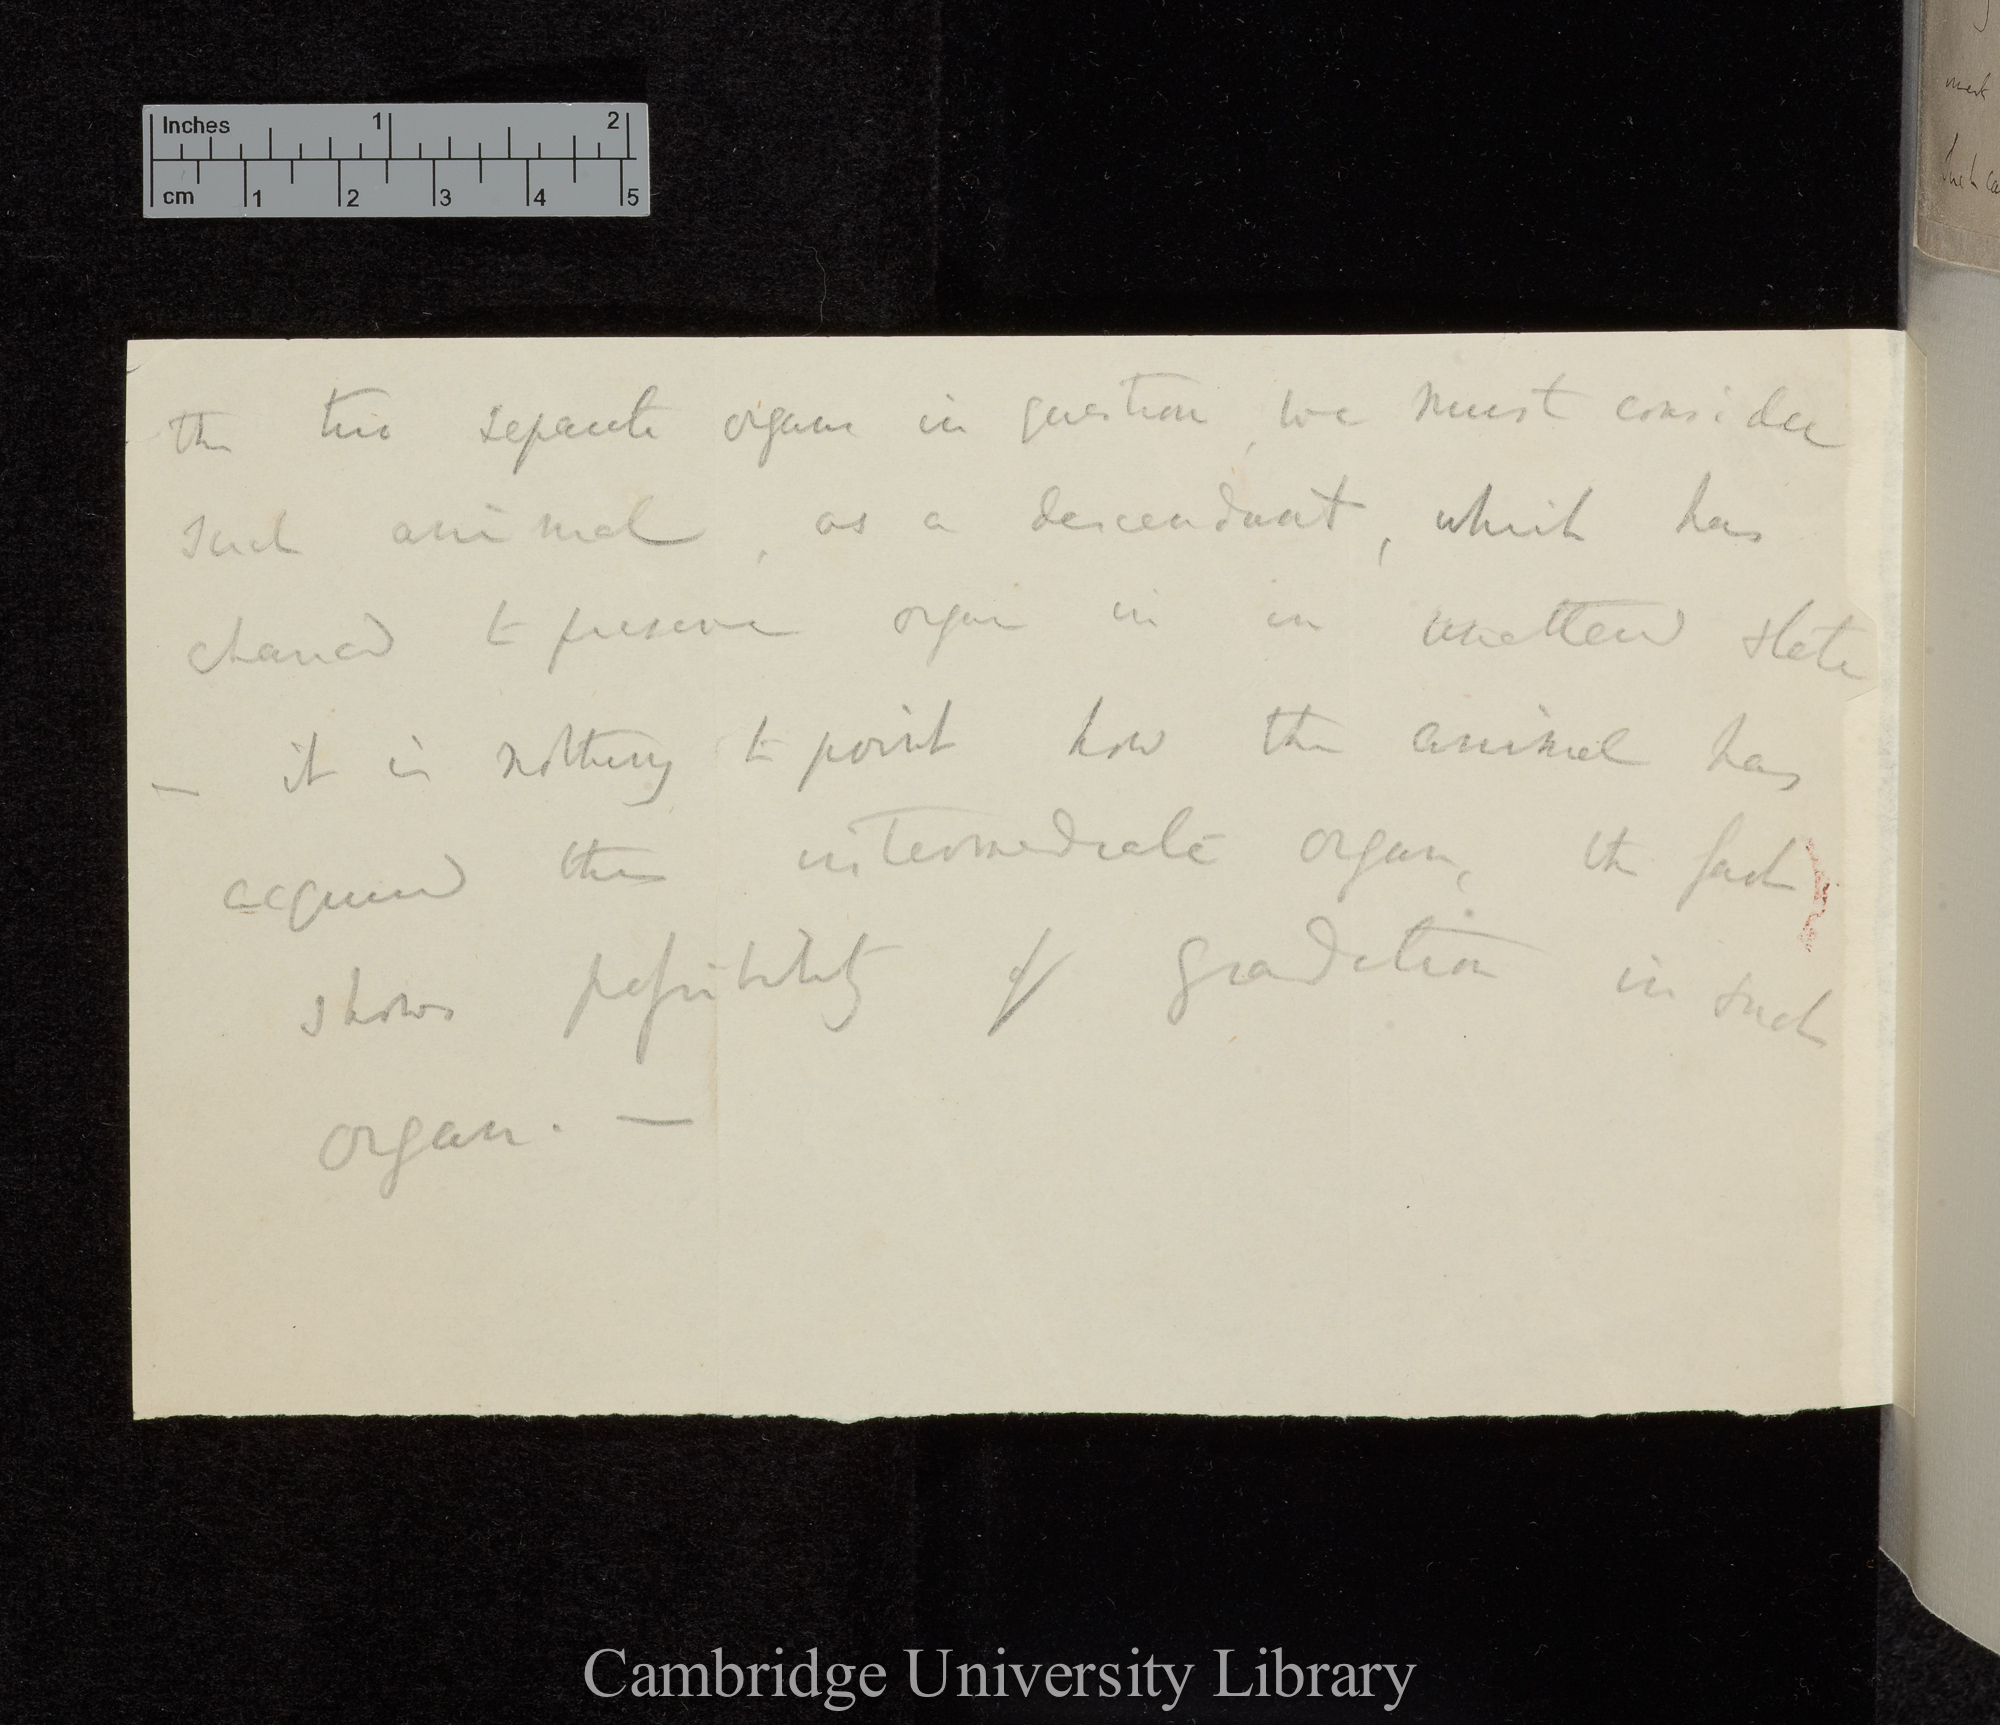 Inches 1 2
cm 1 2 3 4 5
the two separate organs in question, we must consider
such animal, as a descendant, which has
chanced to preserve organ in an unaltered state
— it is nothing to point how the animal has
acquired this intermediate organ, the fact
shows possibility of gradation in such
organ. —
Cambridge University Library